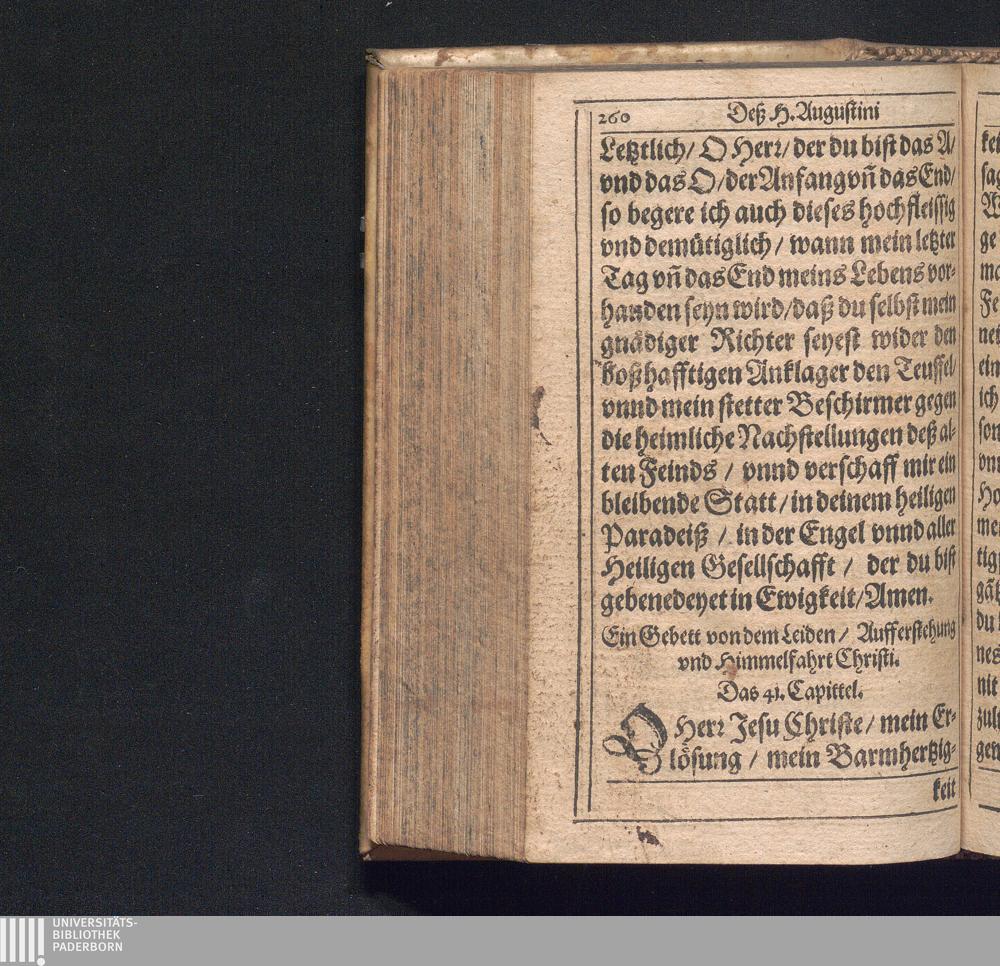 260 Deß H. Augustini
Letztlich/ O Herr/ der du bist das A/
vnd das O/ der Anfang vñ das End/
so begere ich auch dieses hochfleissig
vnd demütiglich/ wann mein letzter
Tag vñ das End meins Lebens vor-
handen seyn wird/ daß du selbst mein
gnädiger Richter seyest wider den
boßhafftigen Anklager den Teuffel/
vnnd mein stetter Beschirmer gegen
die heimliche Nachstellungen deß al-
ten Feinds / vnnd verschaff mir ein
bleibende Statt/ in deinem heiligen
Paradeiß / in der Engel vnnd aller
Heiligen Gesellschafft / der du bist
gebenedeyet in Ewigkeit/ Amen.
Ein Gebett von dem Leiden / Aufferstehung
vnd Himmelfahrt Christi.
Das 41. Capittel.
O Herr Jesu Christe/ mein Er-
lösung / mein Barmhertzig-
keit
UNIVERSITÄTS-
BIBLIOTHEK
PADERBORN